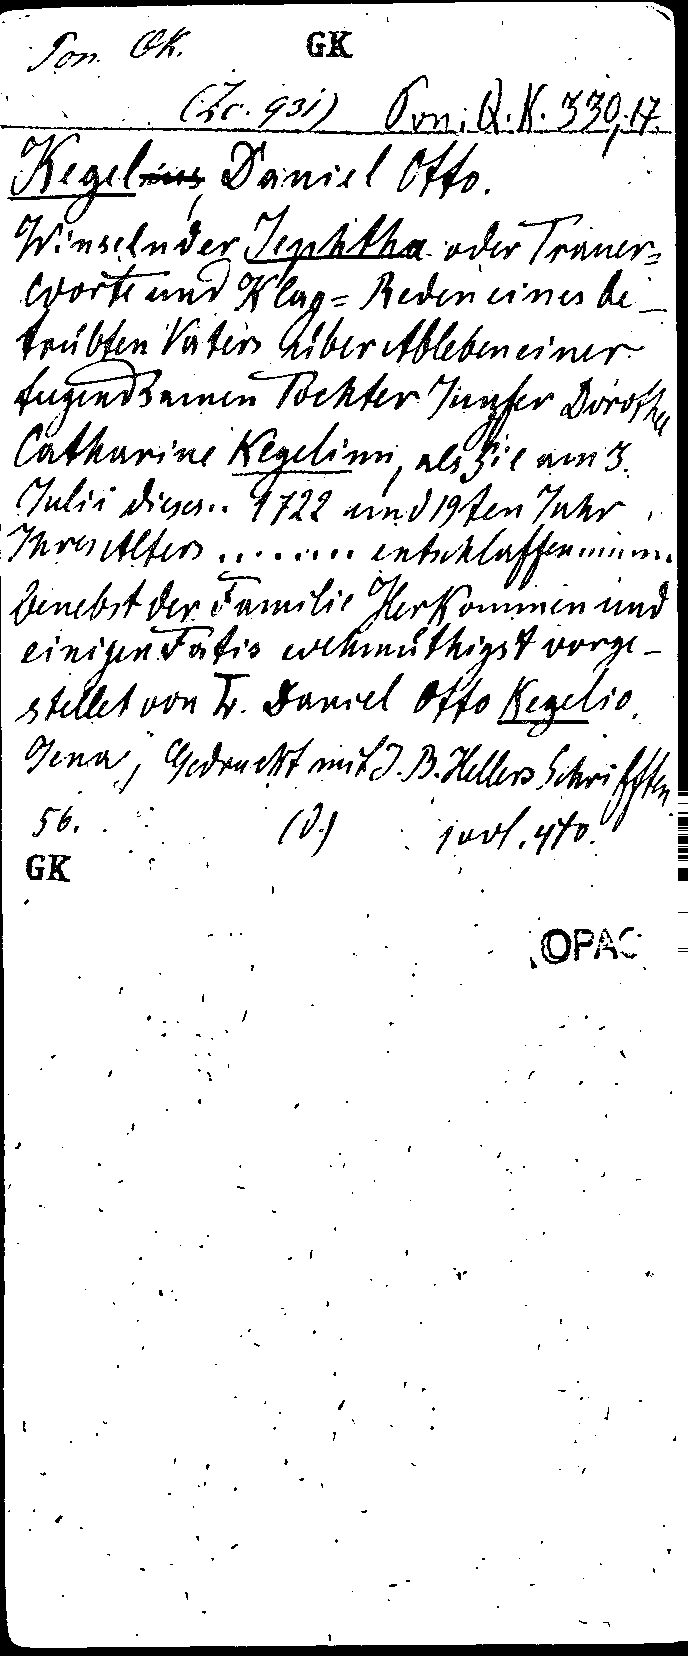 Pon. QK. GK
(Zc. 931) Pon. Q. K. 330, 17.
Kegelius, Daniel Otto.
Winselnder Jephtha oder Trauer=
worte und Klag= Reden eines be-
trübten Vaters über Ableben einer
tugendsamen Tochter Jungfer Dorothea
Catharine Kegelinn, als sie am 3.
Julii dieses.. 1722 und 19ten Jahr
Ihres Alters ........ entschlaffen
benebst der Familie Herkommen und
einigen Fatis wehmüthigst vorge-
stellet von Daniel Otto Kegelio.
Jena, Gedruckt mit J. B. Hellers Schrifften
56. (d.) 4to.
GK
OPAC